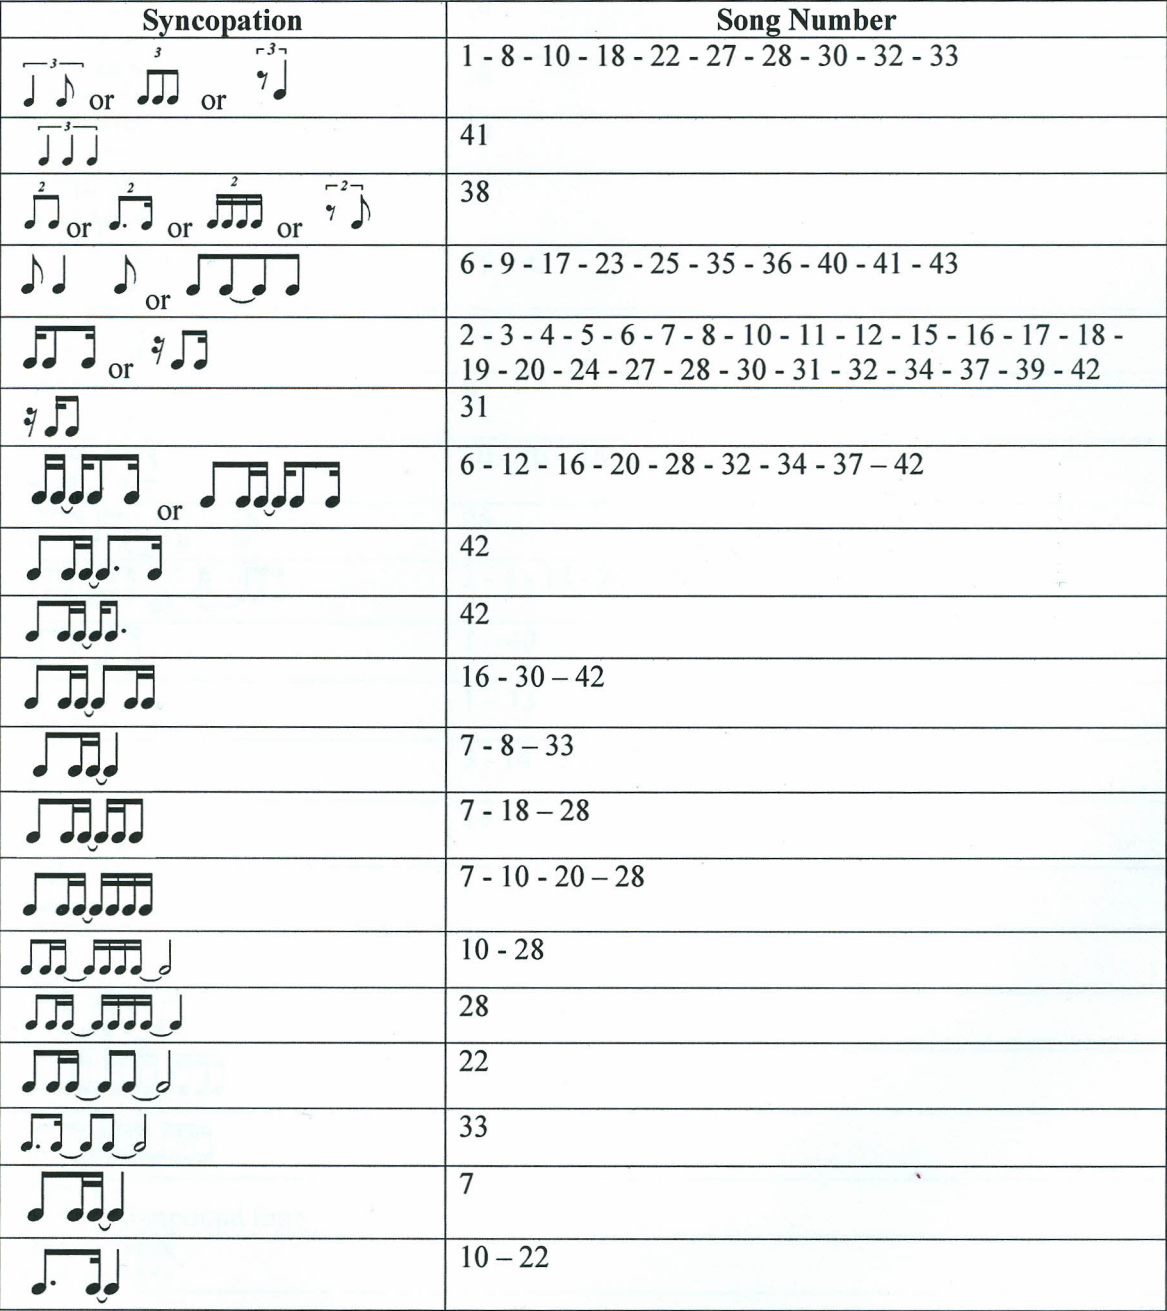 Syncopation Song Number
3 3 3
or or
1 - 8 - 10 - 18 - 22 - 27 - 28 - 30 - 32 - 33
3
41
2 2 2 2
or or or
38
or
6 - 9 - 17 - 23 - 25 - 35 - 36 - 40 - 41 - 43
or
2 - 3 - 4 - 5 - 6 - 7 - 8 - 10 - 11 - 12 - 15 - 16 - 17 - 18 -
19 - 20 - 24 - 27 - 28 - 30 - 31 - 32 - 34 - 37 - 39 - 42
31
or
6 - 12 - 16 - 20 - 28 - 32 - 34 - 37 – 42
42
42
16 - 30 – 42
7 - 8 – 33
7 - 18 – 28
7 - 10 - 20 – 28
10 - 28
28
22
33
7
10 – 22